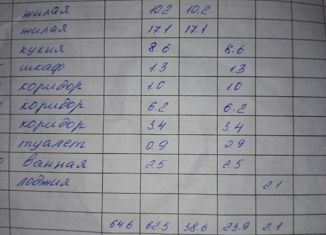 жилая 10.2 10.2
жилая 17.1 17.1
кухня 8.6 8.6
шкаф 1.3 1.3
коридор 1.0 1.0
коридор 6.2 6.2
коридор 3.4 3.4
туалет 0.9 0.9
Ванная 2.5 2.5
лоджия 2.1
64.6 62.5 38.6 23.9 2.1